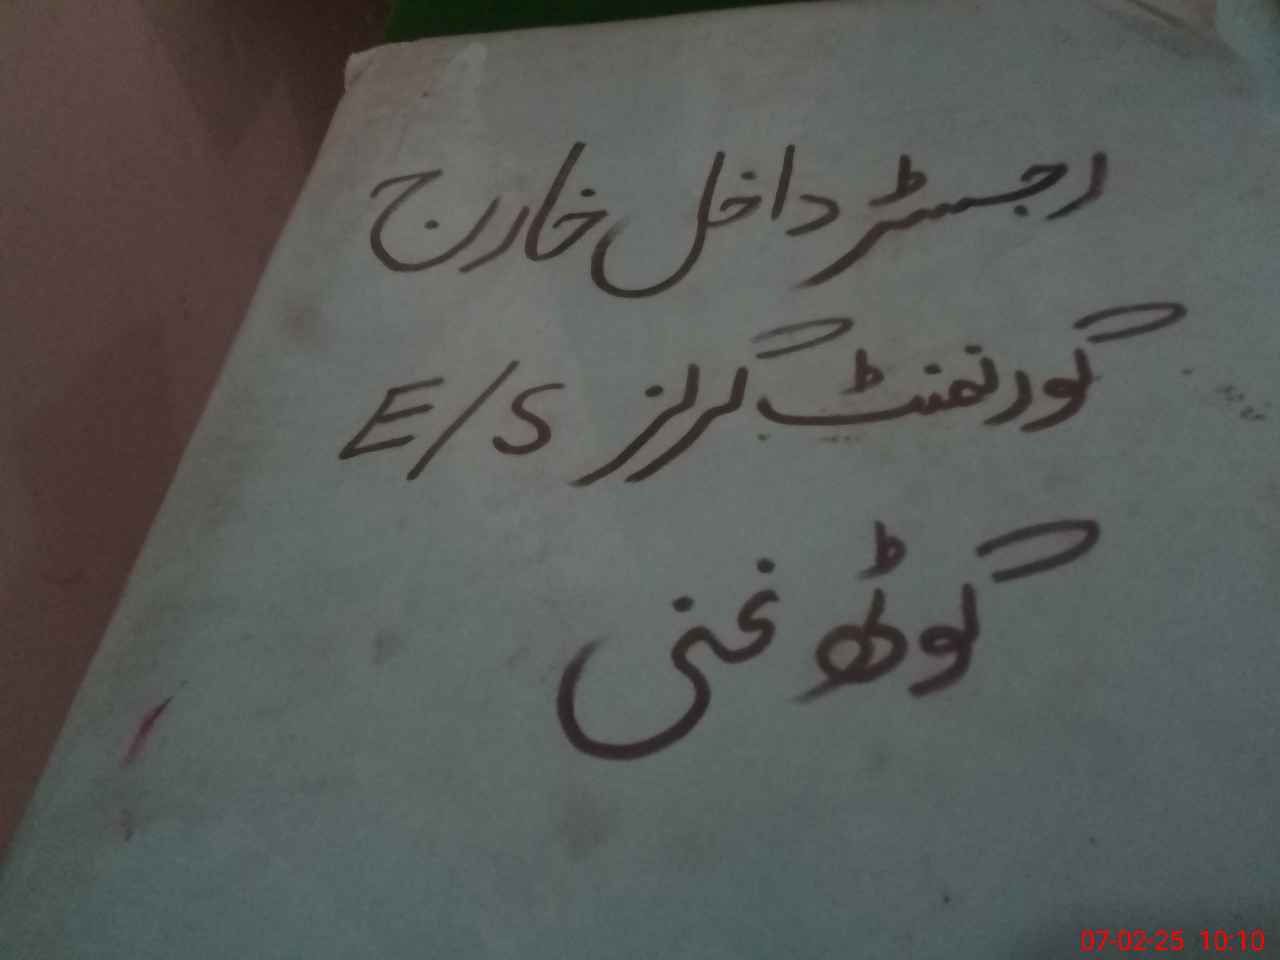 رجسٹر داخل خارج
گورنمنٹ گرلز E/S
گوٹھ غنی
07-02-25 10:10